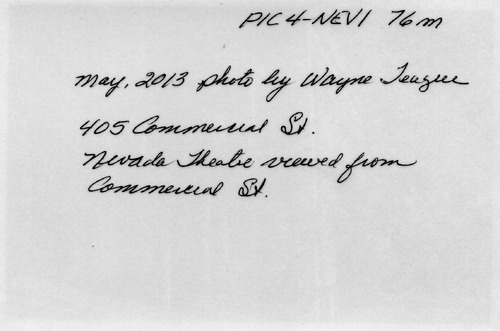 PIC 4-NEV1 76m
May, 2013 photo by Wayne Teague
405 Commercial St.
Nevada Theatre viewed from
Commercial St.